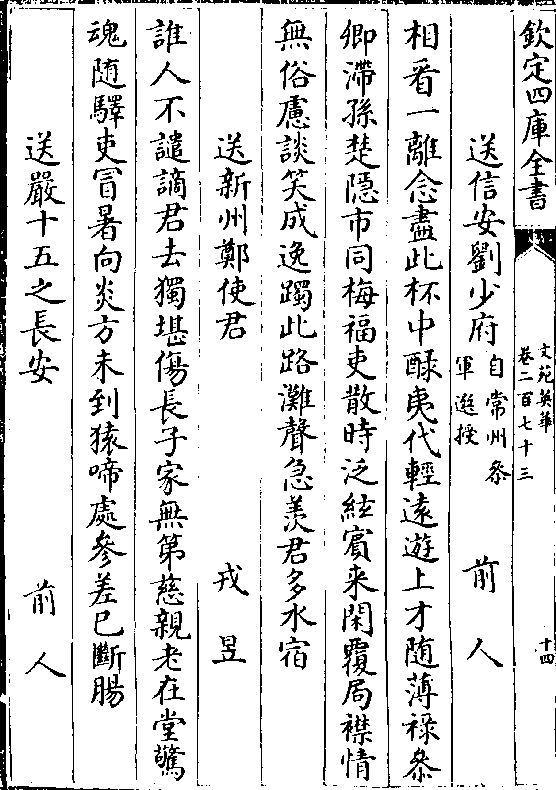 欽定四庫全書
文苑英華
卷二百七十三
十四
送信安劉少府自常州叅軍選授 前人
相看一離念盡此杯中醁夷代輕遠遊上才随薄祿叅
卿滯孫楚隠市同梅福吏散時泛絃賓来閑覆局襟情
無俗慮談笑成逸躅此路灘聲急羨君多水宿
送新州鄭使君 戎昱
誰人不譴謫君去獨堪傷長子家無第慈親老在堂驚
魂随驛吏冐暑向炎方未到猿啼處參差已斷腸
送嚴十五之長安 前人